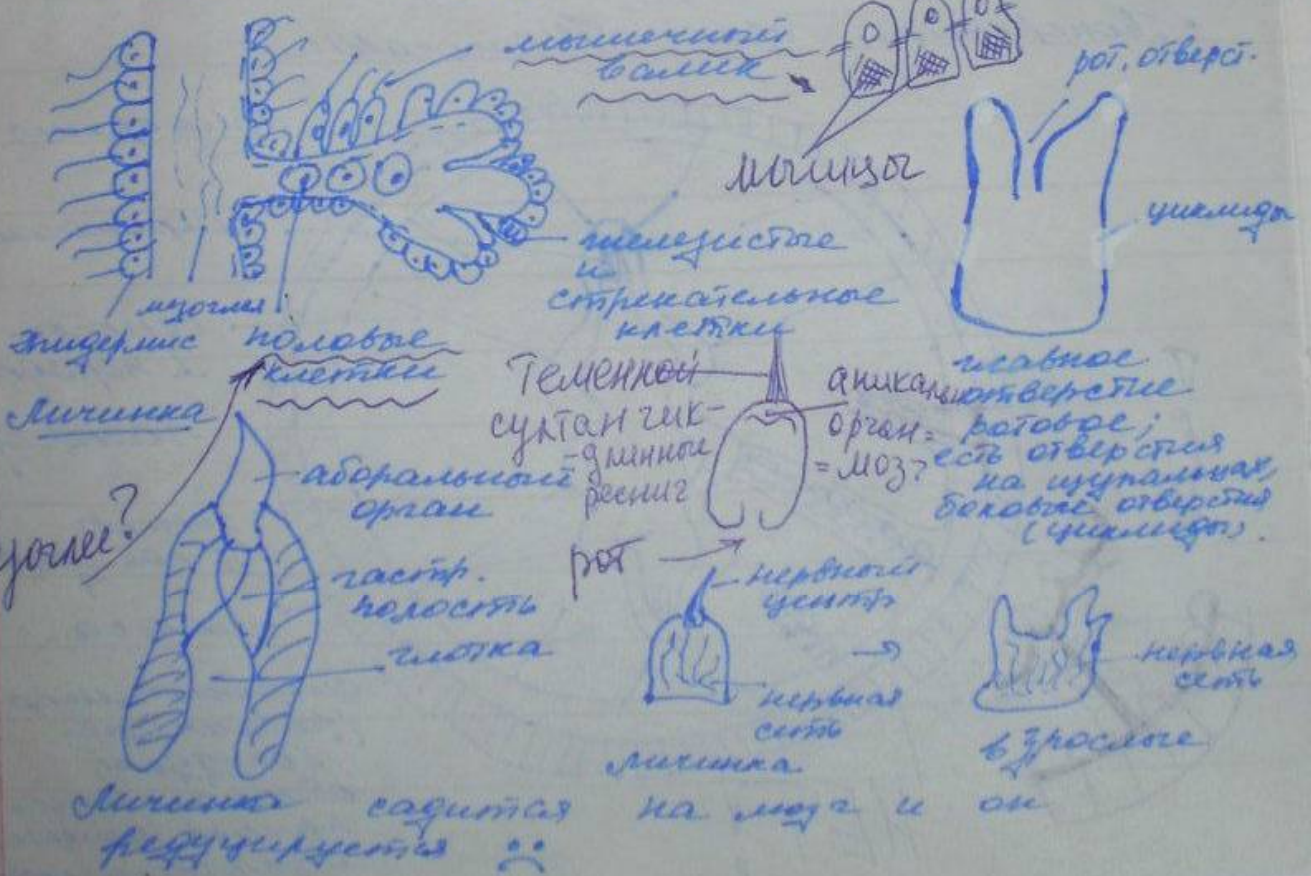 мышечный
валик
рот. отверст.
мышцы
циклиды
железистые
и
стрекательные
клетки
мезоглея
Эпидермис
половые
клетки
Теменной
султанчик-
-длинные
реснич
апикальн
орган=
=мозг
главное
отверстие
ротовое;
есть отверстия
на щупальцах,
боковые отверстия
(циклиды).
Личинка
аборальный
орган
гастр.
полость
глотка
рот
нервный
центр
нервная
сеть
личинка
нервная
сеть
взрослые
Личинка садится на мозг и он
редуцируется